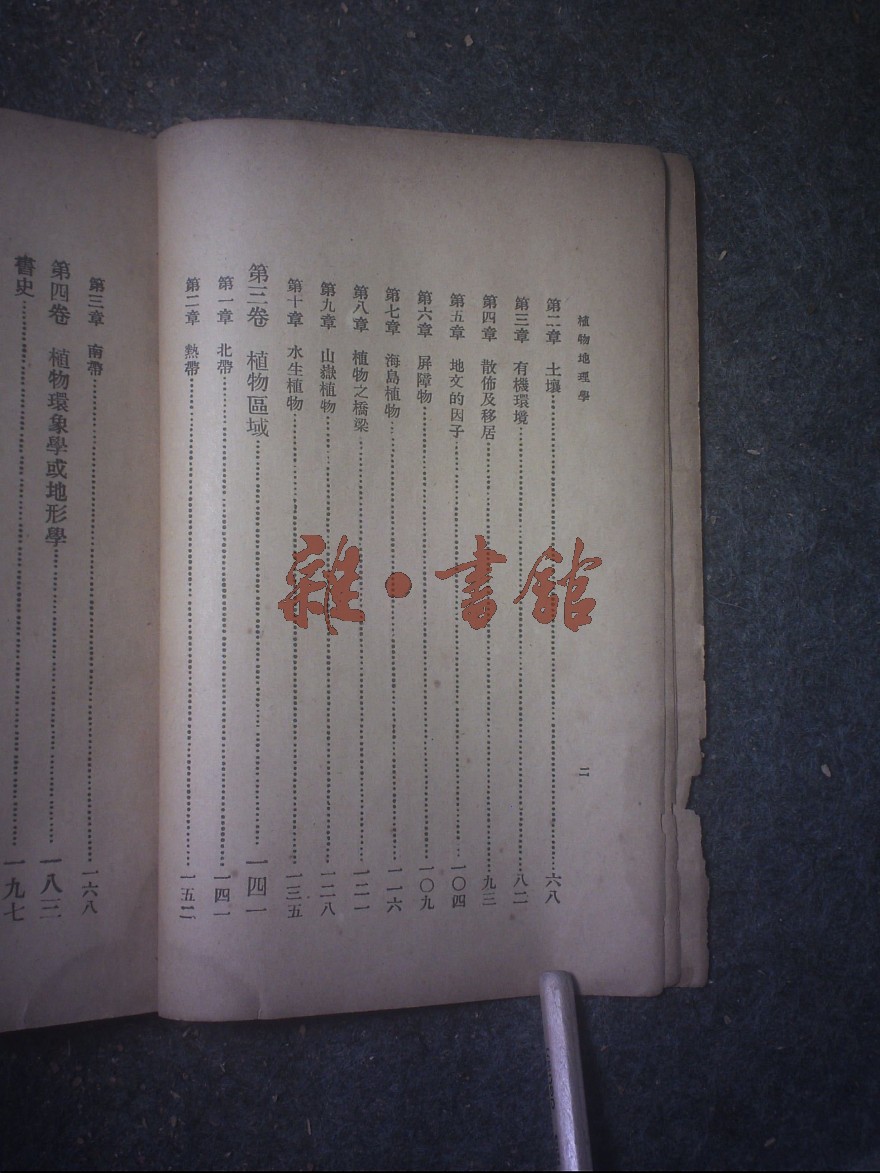 植物地理學 二
第二章 土壤 六八
第三章 有機環境 八二
第四章 散佈及移居 九三
第五章 地文的因子 一〇四
第六章 屏障物 一〇九
第七章 海島植物 一一六
第八章 植物之橋梁 一二一
第九章 山嶽植物 一二八
第十章 水生植物 一三五
第三卷 植物區域 一四一
第一章 北帶 一四一
第二章 熱帶 一五二
第三章 南帶 一六八
第四卷 植物環象學或地形學 一八三
書史 一九七
雜·書館